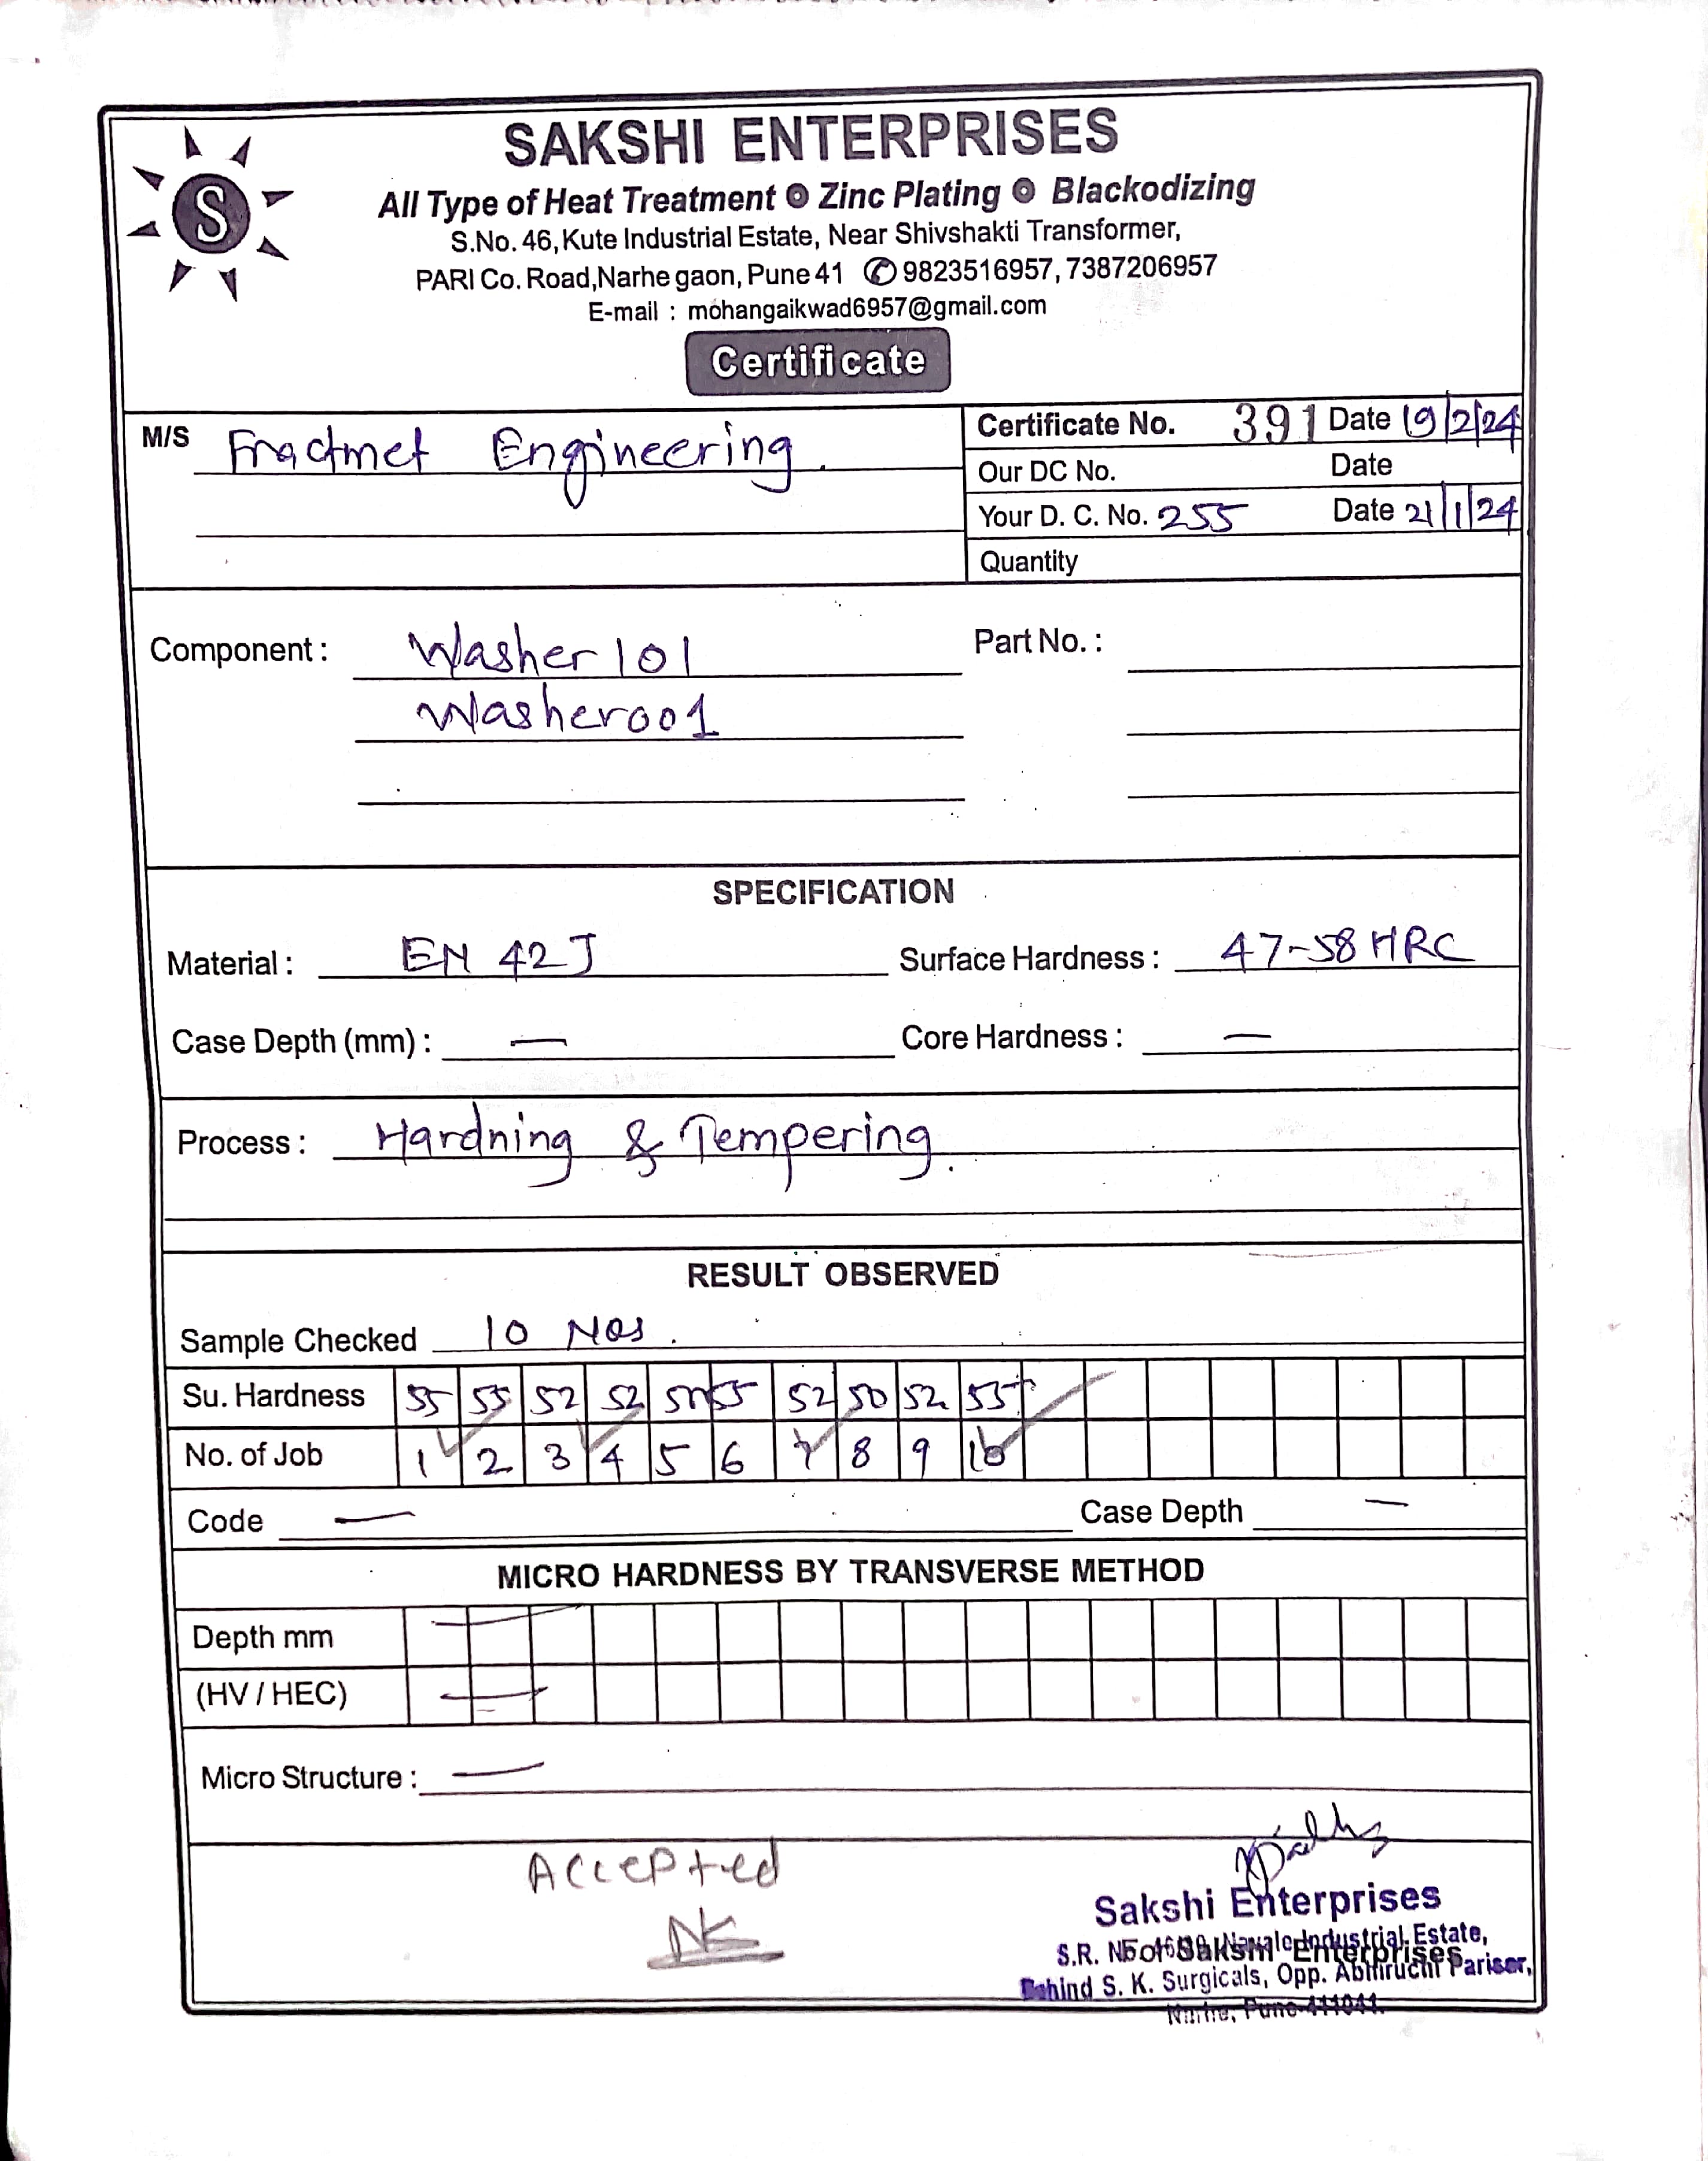 S
SAKSHI ENTERPRISES
All Type of Heat Treatment ⊙ Zinc Plating ⊙ Blackodizing
S.No. 46, Kute Industrial Estate, Near Shivshakti Transformer,
PARI Co. Road, Narhe gaon, Pune 41 ✆ 9823516957, 7387206957
E-mail : mohangaikwad6957@gmail.com
Certificate
M/S Fractmet Engineering.
Certificate No. 391 Date 19/2/24
Our DC No. Date
Your D. C. No. 255 Date 21/1/24
Quantity
Component : Washer 101 Part No. :
Washer001
SPECIFICATION
Material : EN 42 J Surface Hardness : 47-58 HRC
Case Depth (mm) : — Core Hardness : —
Process : Hardning & Tempering.
RESULT OBSERVED
Sample Checked 10 Nos.
Su. Hardness 55 55 52 52 55 52 50 52
No. of Job 1 2 3 4 5 6 7 8 9 10
Code — Case Depth —
MICRO HARDNESS BY TRANSVERSE METHOD
Depth mm —
(HV / HEC) —
Micro Structure : —
Accepted
NK
Sakshi Enterprises
S.R. Industrial Estate,
For Sakshi Enterprises
Behind S. K. Surgicals, Opp. Abhiruchi Pariser,
Narhe, Pune-411041.